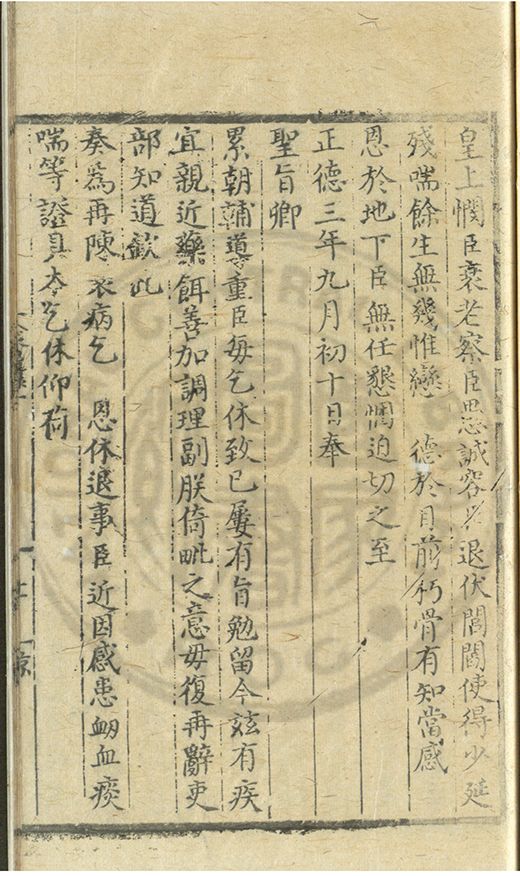 皇上憫臣衰老察臣思誠容臣退伏閭閻使得少延
殘喘餘生無幾惟戀 德於目前朽骨有知當感
恩於地下臣無任懇悃迫切之至
正德三年九月初十日奉
聖旨卿
累朝輔導重臣每乞休致已屢有旨勉留今玆有疾
宜親近藥餌善加調理副朕倚毗之意毋復再辭吏
部知道欽此
奏爲再陳衰病乞 恩休退事臣近因感患衂血痰
喘等證具本乞休仰荷